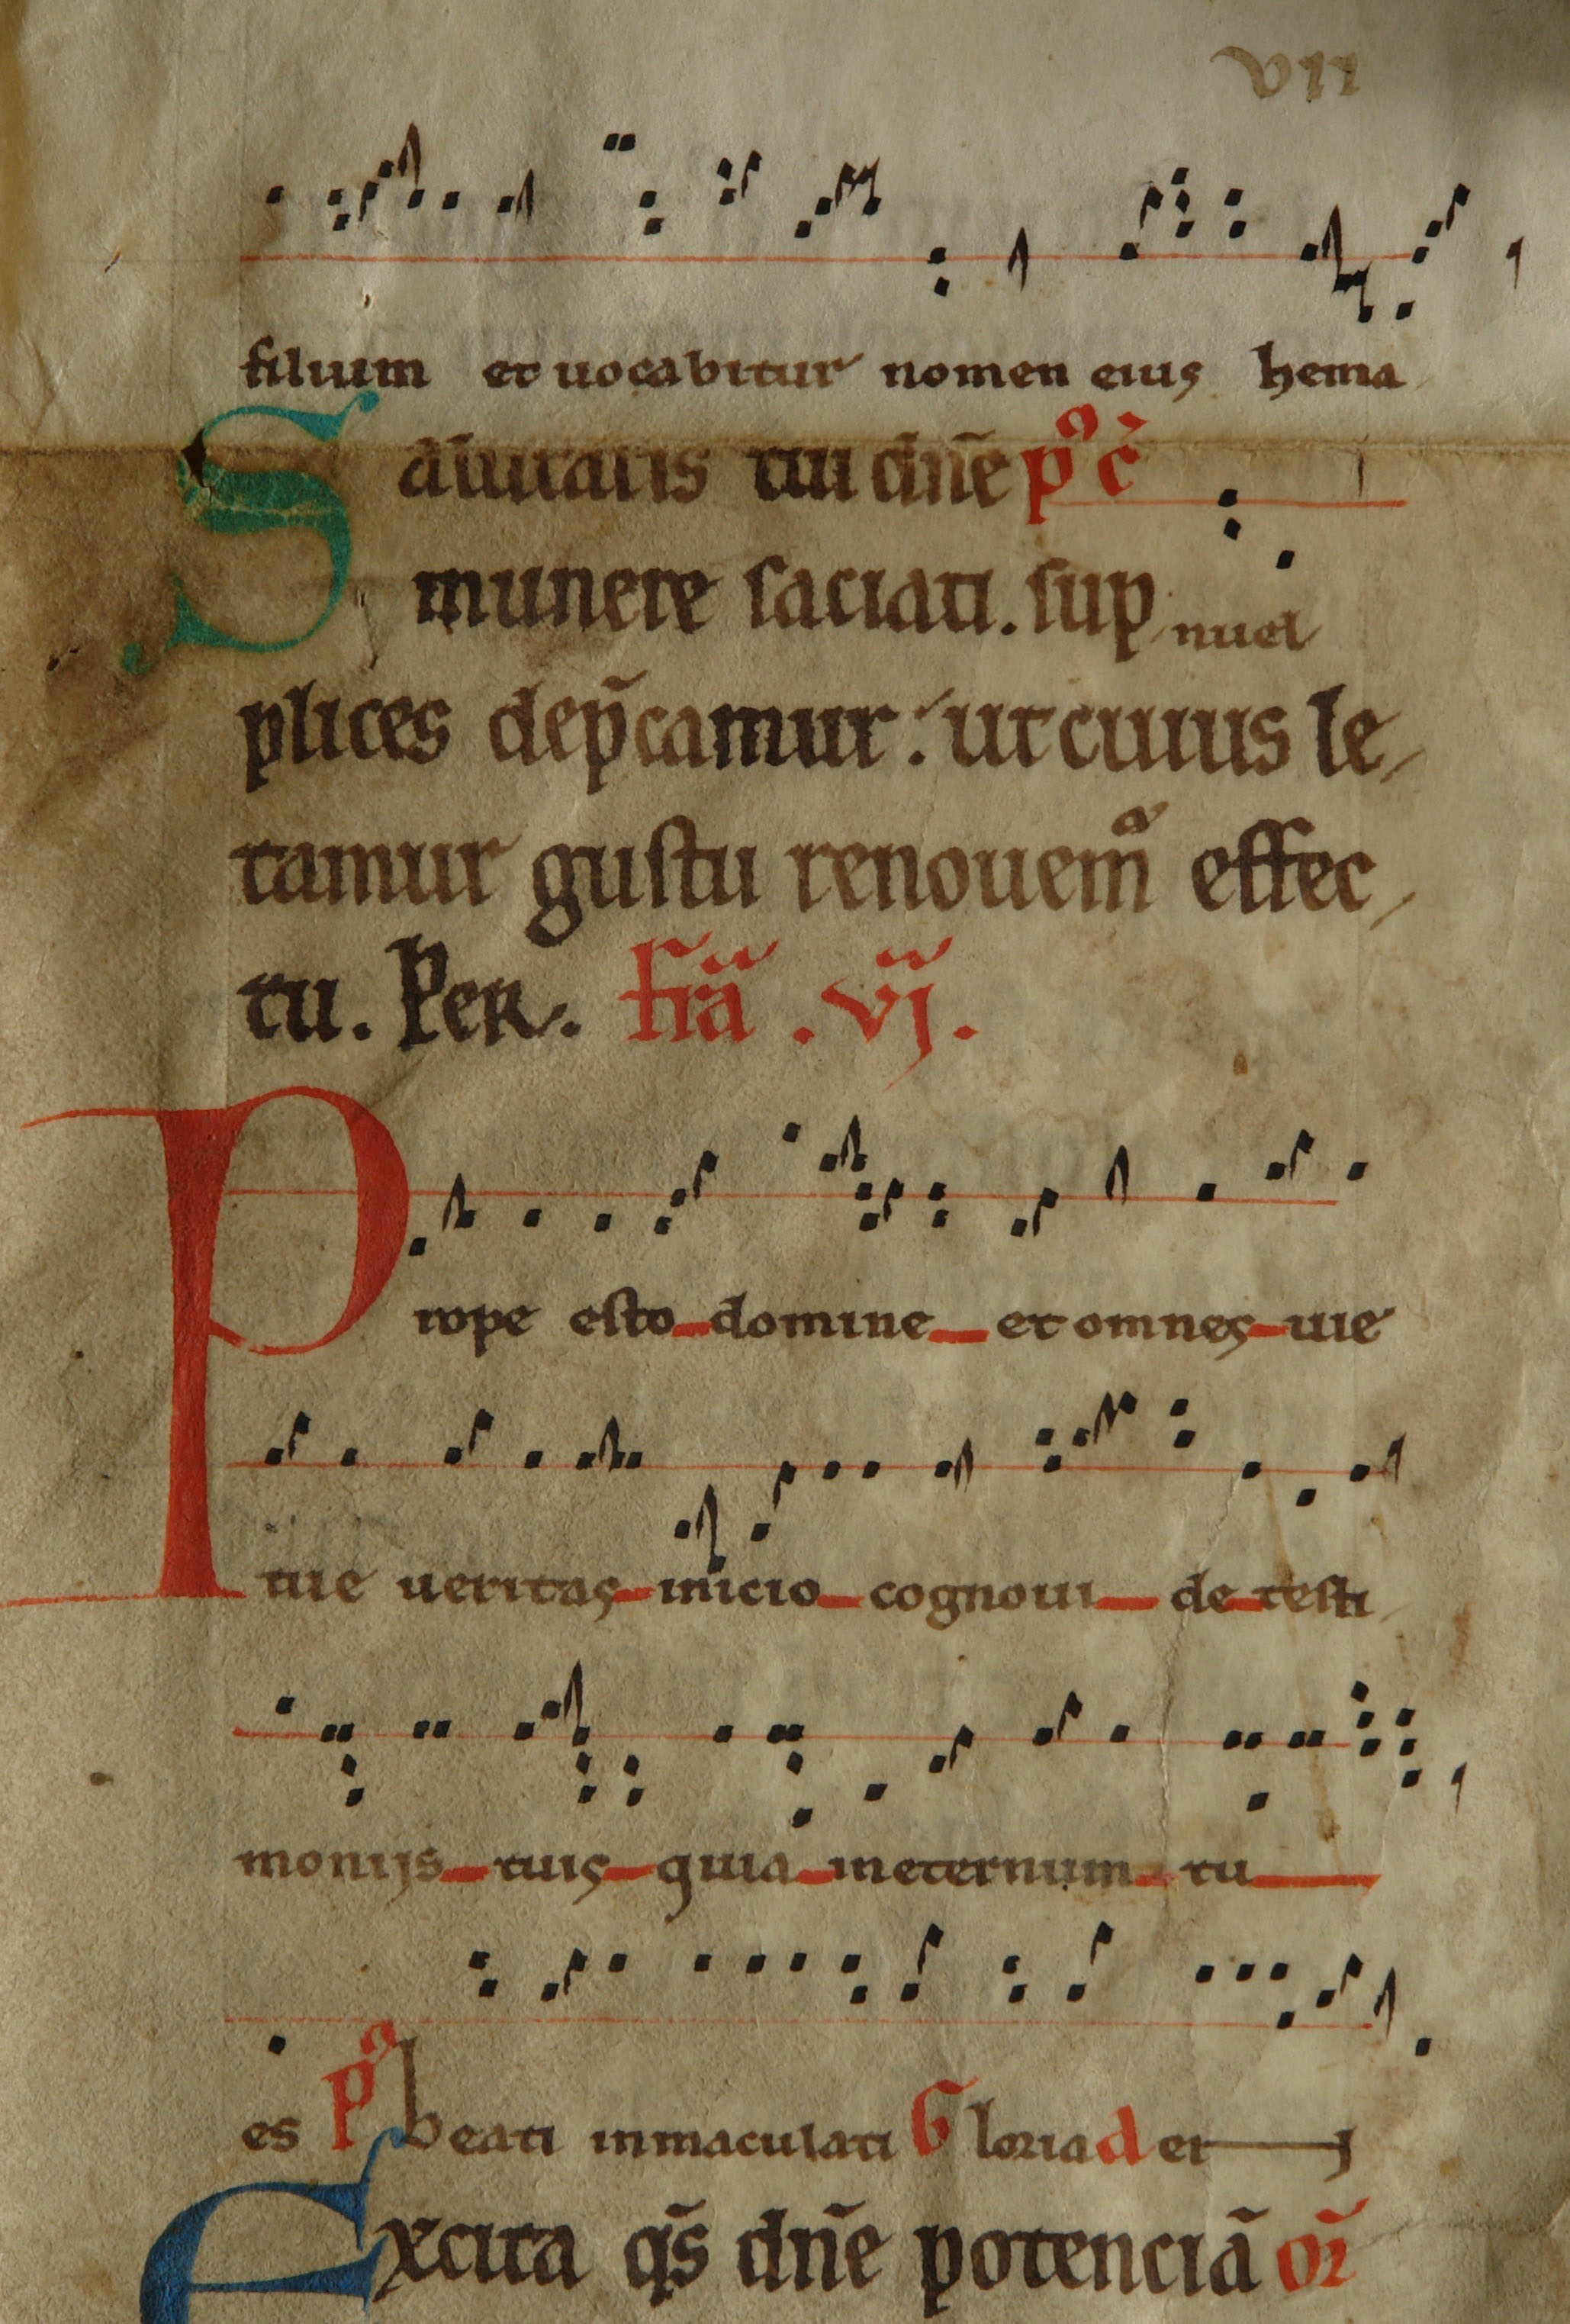 vii
filium et uocabitur nomen eius hema
Salutaris tui dn̄e p̄ꝰ c̄
munere saciati. sup nuel
plices dep̄camur: ut cuius le
tamur gustu renouemꝰ effec
tu. Per. fr̄a .vj.
Prope esto domine et omnes uie
tue ueritas inicio cognoui de testi
monijs tuis quia ineternum tu
es pꝰ beati inmaculati Gloria d et
Excita qs̄ dn̄e potenciā or̄